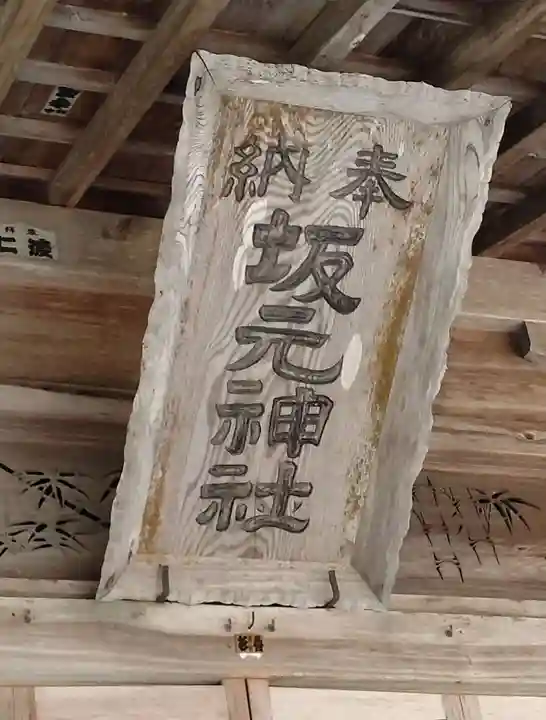 奉納
坂元神社